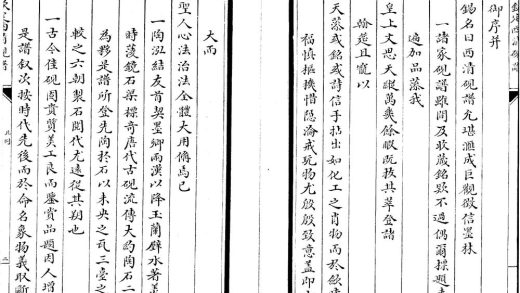 御序并
錫名曰西清硯譜允堪滙成巨觀徵信墨林
一諸家硯譜雖閒及收藏銘款不過偶爾標題未
遍加品藻我
皇上文思天縱萬幾餘暇既拔其萃登諸
翰筵且寵以
天藻或銘或詩信手拈出如化工之肖物而於飲
福慎樞機惜隱淪戒玩物尤殷殷致意蓋即小
大而
聖人心法治法全體大用備焉已
一陶泓結友首契墨卿兩漢以降玉蘭辟水著
時薄鏡石渠標奇唐代古硯流傳大約陶石二
為夥是譜所登先陶於石以未央之瓦三臺之
較之六朝製石閱代尤遠從其朔也
一古今佳硯固貴質美工良而鑒賞品題因人增
是譜叙次按時代先後而於命名象物義取斷
凡例
二